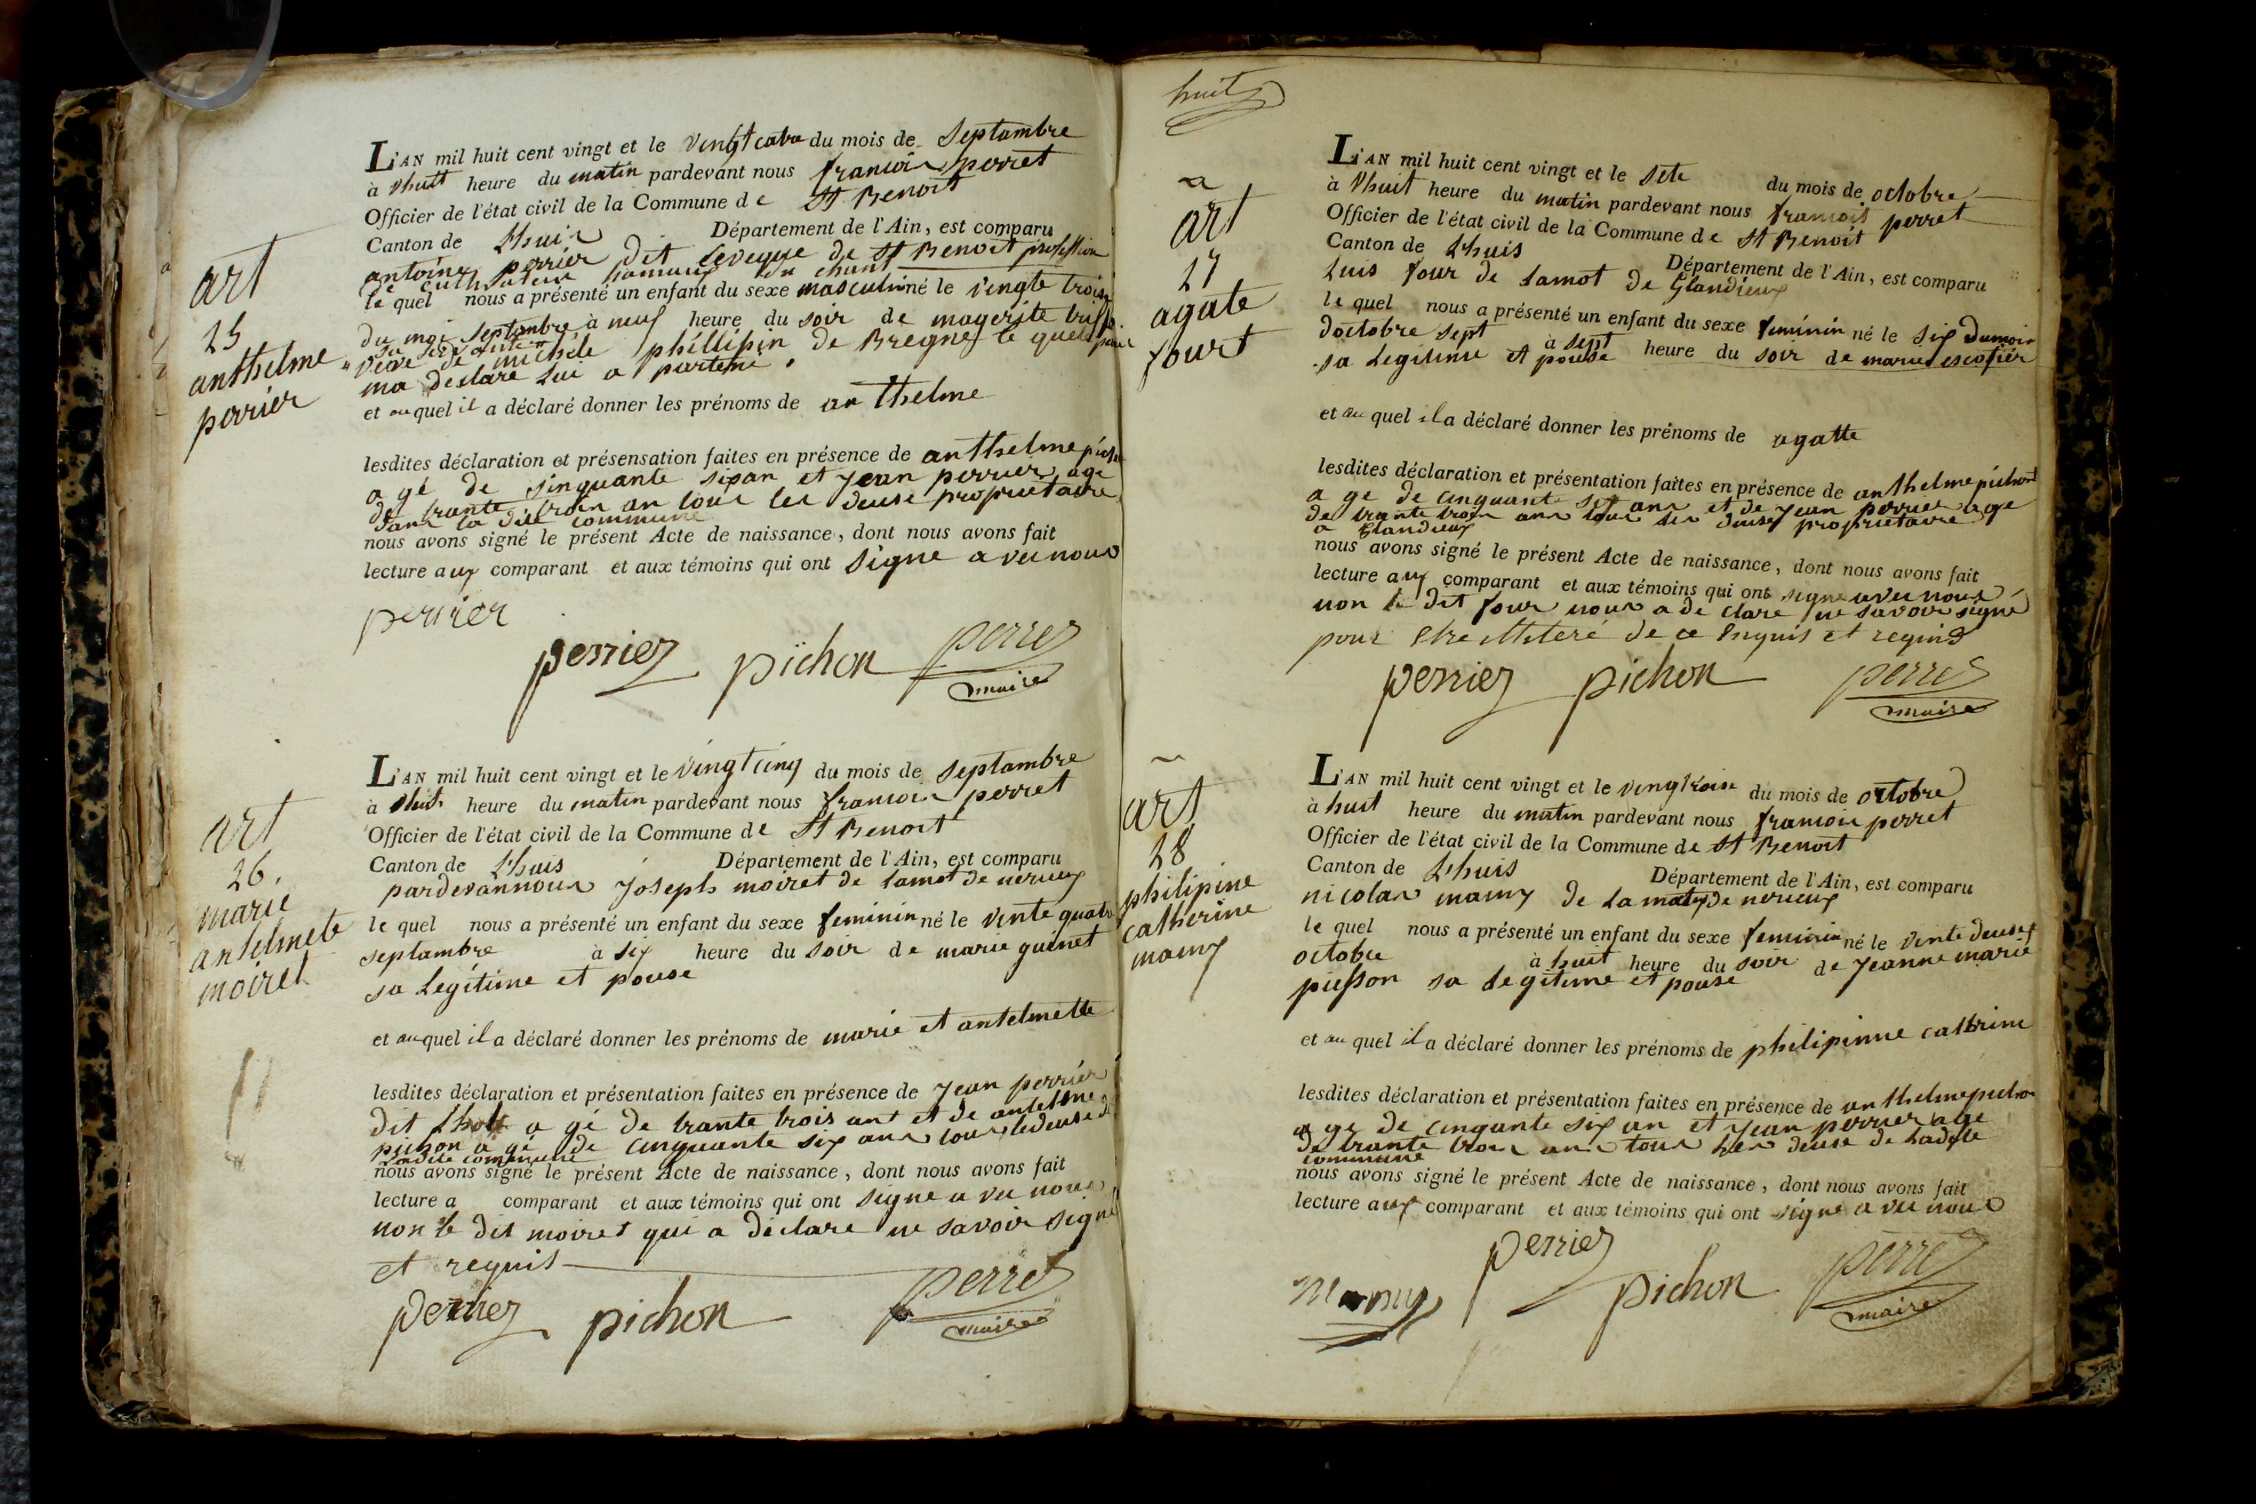 L'AN mil huit cent vingt et le vingtcatre du mois de Septambre
à Vhuit heure du matin pardevant nous francois perret
Officier de l'état civil de la Commune de St Benoit
Canton de Lhuis Département de l'Ain, est comparu
antoine perrier dit Leveque de St Benoit profession
de cultivateur hamaux du chant
le quel nous a présenté un enfant du sexe masculin né le vingte trois
du moi septambre à neuf heure du soir de
sa
veve de michéle phillipin de Bregnes le quel
ma declare lui a partenir
et au quel il a déclaré donner les prénoms de anthelme
lesdites déclaration et présensation faites en présence de anthelme
a gé de sinquante sixan et jean perrier age
de trante troin an tous les deuse proprietaire
dans la dite commune
nous avons signé le présent Acte de naissance, dont nous avons fait
lecture aux comparant et aux témoins qui ont signe a veu nous
perrier
perrier pichon perret
maire
art
25
anthelme
perrier
L'AN mil huit cent vingt et le vingt cinq du mois de Septambre
à heure du matin pardevant nous francois perret
Officier de l'état civil de la Commune de St Benoit
Canton de Lhuis Département de l'Ain, est comparu
pardevannous joseph moiret de lamot de nerieux
le quel nous a présenté un enfant du sexe feminin né le vente quatre
septambre à six heure du soir de marie guinet
sa Legitime et pouse
et au quel il a déclaré donner les prénoms de marie et antelmette
lesdites déclaration et présentation faites en présence de jean perrier
dit a gé de trante trois ant et de antelme
pichon a gé de cinquante six ans tous ledeuse de
ladite commune
nous avons signé le présent Acte de naissance, dont nous avons fait
lecture a comparant et aux témoins qui ont signe a veu nous
non le dit moiret qui a déclare ne savoir signé
et requis
perrier pichon perret
maire
art
26.
marie
antelmete
moiret
huit
L'AN mil huit cent vingt et le sete du mois de octobre
à Vhuit heure du matin pardevant nous francois perret
Officier de l'état civil de la Commune de St Benoit
Canton de Lhuis Département de l'Ain, est comparu
Luis four de Lamot de Glandieux
le quel nous a présenté un enfant du sexe feminin né le six Dumoir
doctobre sept à sept heure du soir de marie escofier
sa Legitime et pouse
et au quel il a déclaré donner les prénoms de agatte
lesdites déclaration et présentation faites en présence de anthelme pichont
a ge de cinquante sit ans et de jean perrier age
de trante troin ans tous les deuse proprietaire
a Glandieux
nous avons signé le présent Acte de naissance, dont nous avons fait
lecture aux comparant et aux témoins qui ont signe aveu nous
non le dit four nous a de clare ne savoir signé
pour de ce enquis et requis
perrier pichon perret
maire
art
27
agate
fourt
L'AN mil huit cent vingt et le vingtroise du mois de octobre
à huit heure du matin pardevant nous francois perret
Officier de l'état civil de la Commune de St Benoit
Canton de Lhuis Département de l'Ain, est comparu
nicolas mamy de La de nerieux
le quel nous a présenté un enfant du sexe feminin né le vente deuse
octobre à huit heure du soir de jeanne marie
piesson sa legitime et pouse
et au quel il a déclaré donner les prénoms de philipinne cathrine
lesdites déclaration et présentation faites en présence de anthelme pichon
a ge de cinquante six an et jean perrier age
de trante troin ans tous les deuse de Ladite
commune
nous avons signé le présent Acte de naissance, dont nous avons fait
lecture aux comparant et aux témoins qui ont signe a veu nous
Mamy perrier pichon perret
maire
art
28
philipine
catherine
mamy